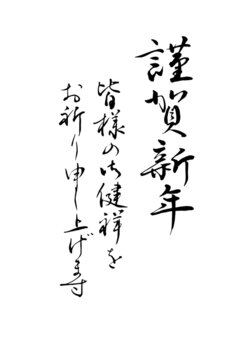 謹賀新年
皆様の御健祥を
お祈り申し上げます